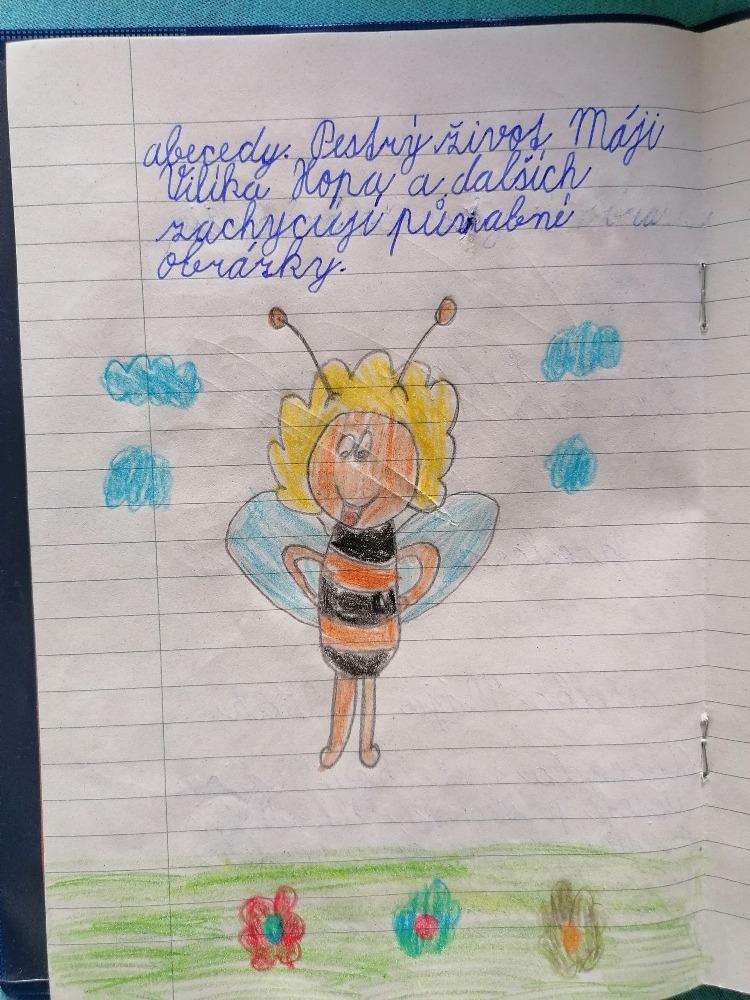 abecedy. Pestrý život Máji
Vilíka Hopa a dalších
zachycují půvabné
obrázky.